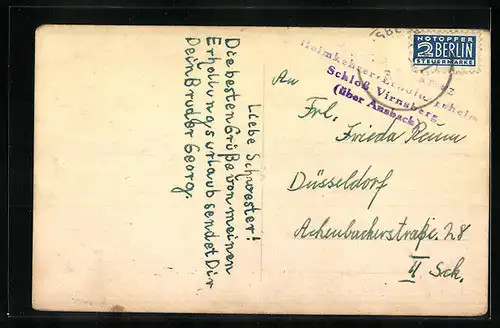 Liebe Schwester!
Die besten Grüße von meinen
Erhollungsurlaub sendet Dir
Dein Bruder Georg.
NOTOPFER
2 BERLIN
STEUERMARKE
Schloß Virnsberg
(über Ansbach)
An
Frl. Frieda
Düsseldorf
Achenbacherstraße. 28
II Sch.